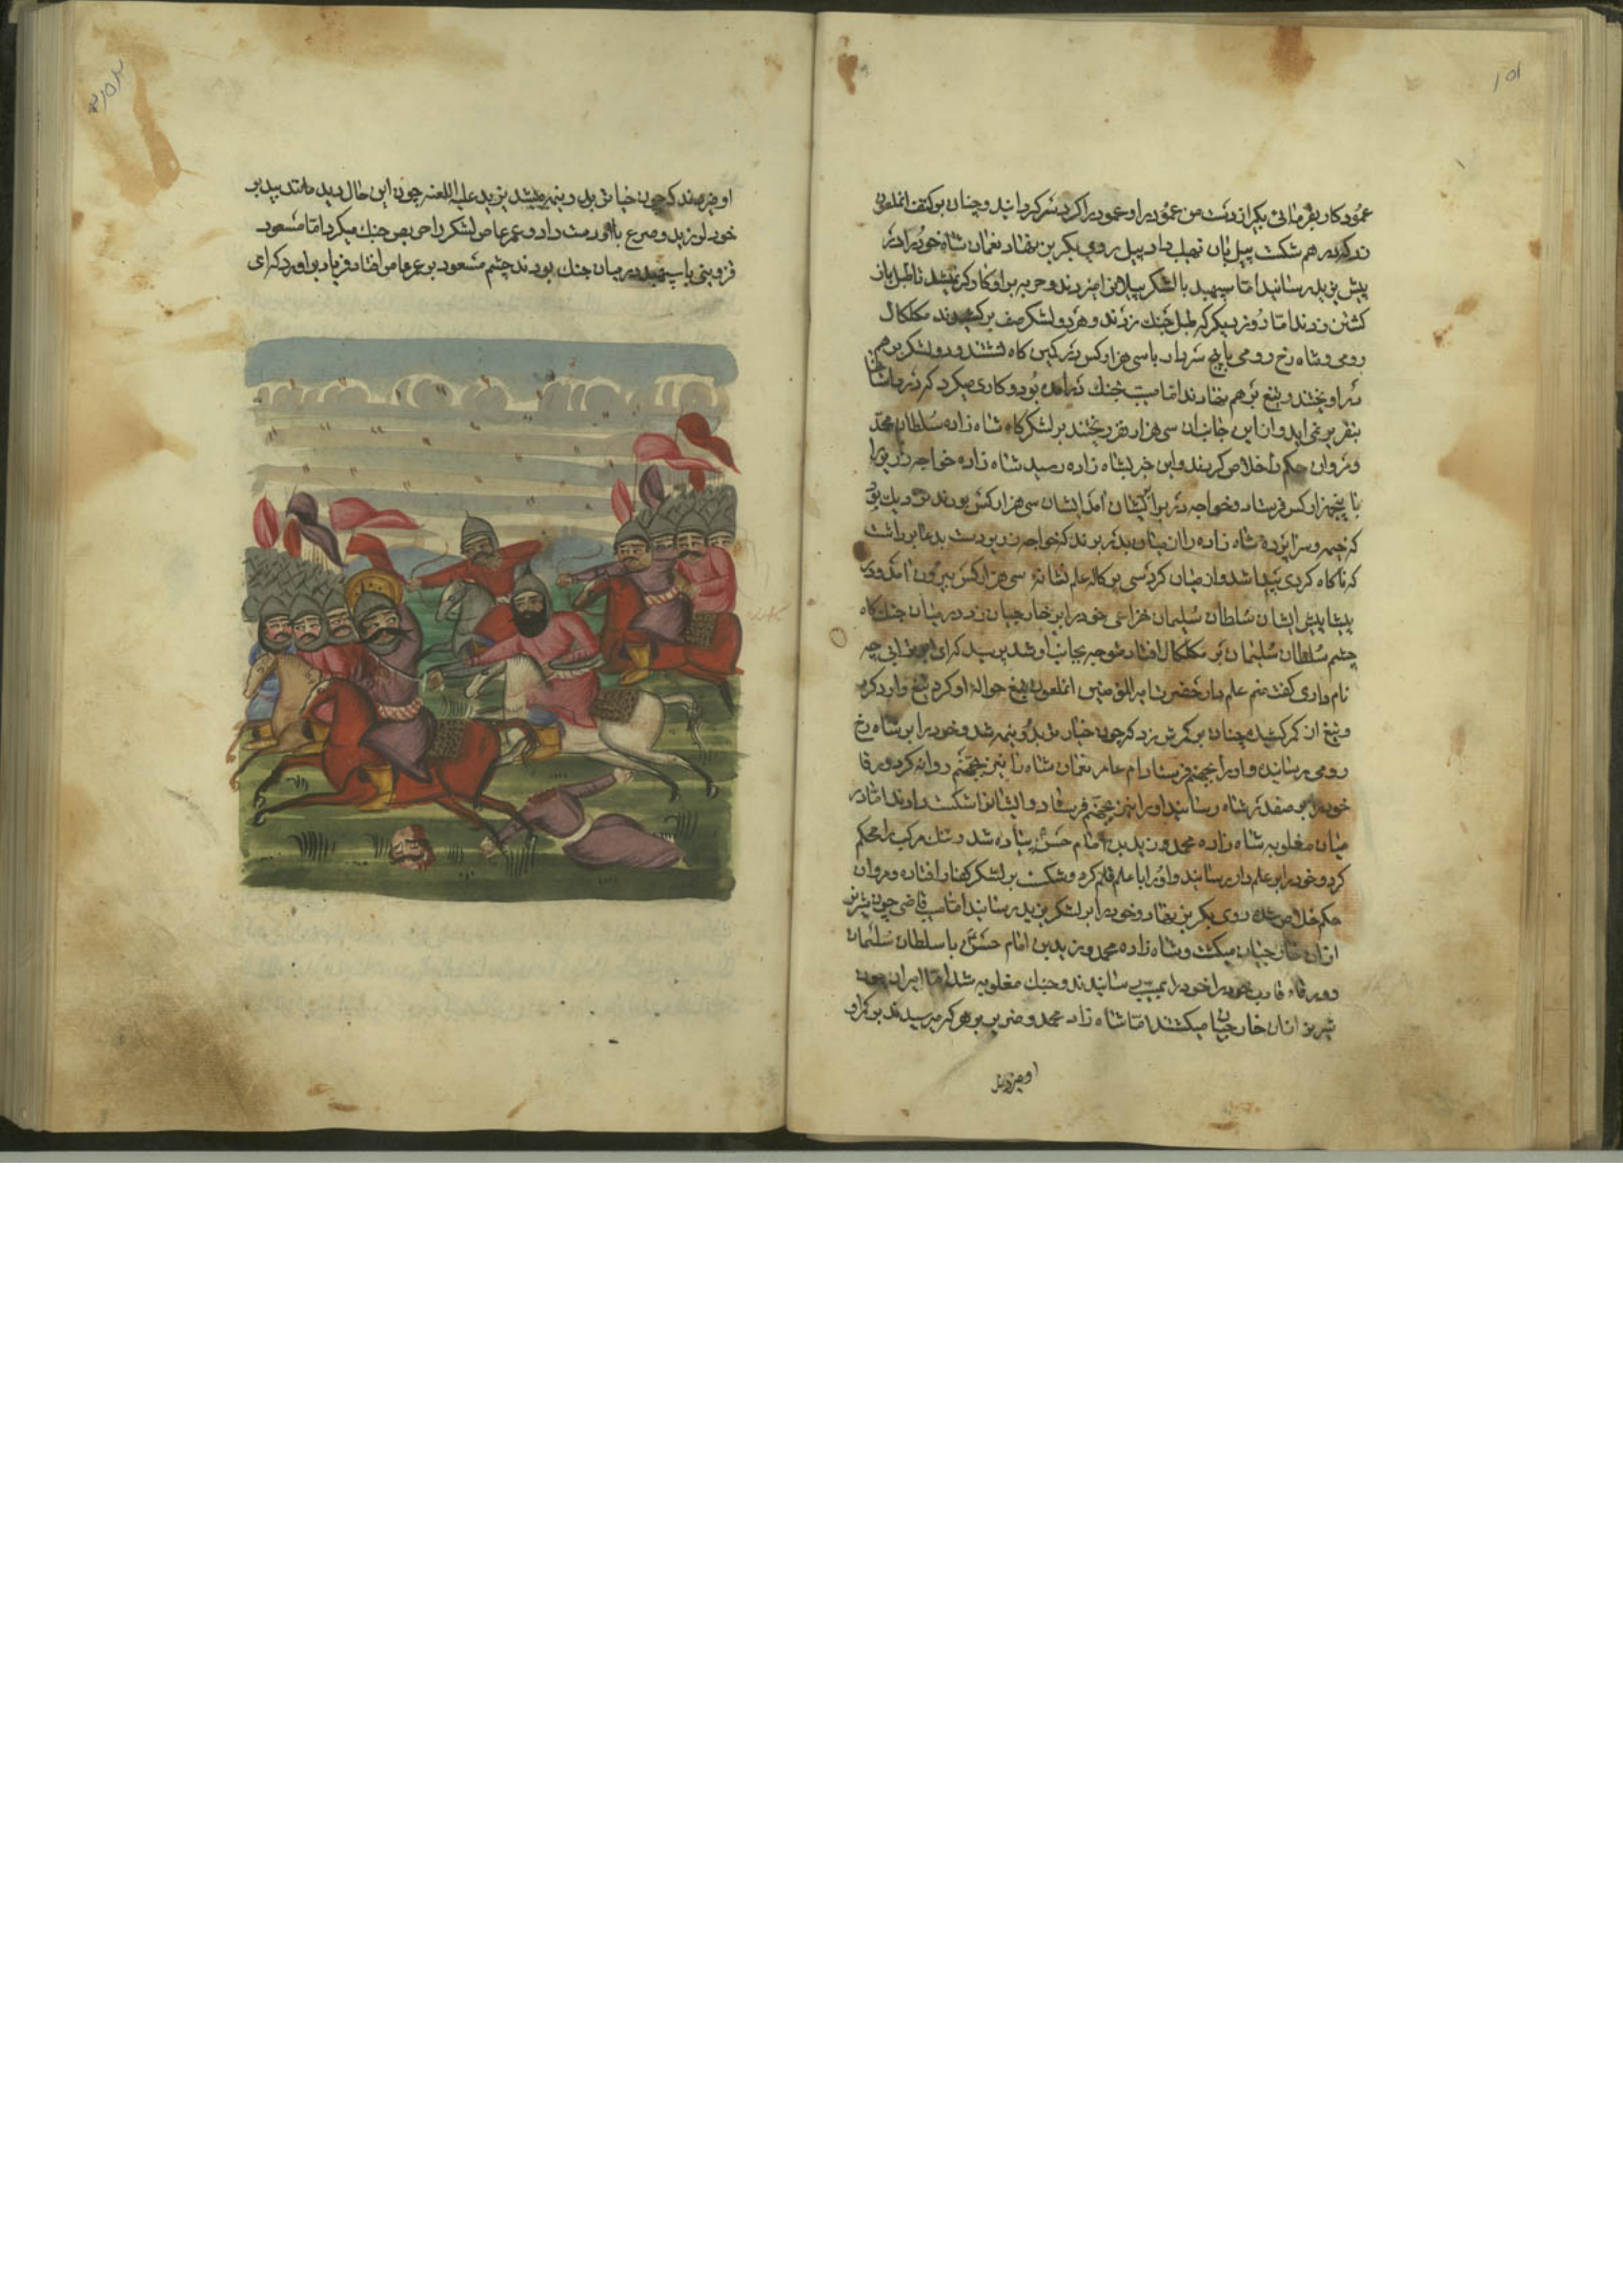 ۱۵۱
عمود کار بفرمائی بگیر از دست من عمود را و عمود را کرد سر کردانید و چنان بر کتف انملعون
زد که در هم شکست پیل بان نهیب داد پیل روی بکریز نهاد نعمان شاه خود را در
پیش یزید رسانید اما سپهبد با لشکر پیلان امیزدند و حربه بر او کارکر نمیشد تا طبل باز
کشتن زدند اما روز دیکر که طبل جنك زدند و هر دو لشکر صف برکشیدند مکلکال
رومی و شاه رخ رومی با پنج سردار با سی هزار کس در کمین کاه نشستند و دو لشکر بر هم
در اویختند و تیغ بر هم نهادند اما مسیب جنك در امده بود و کاری میکرد که در داستانها
بتقریر نمی اید و از این جانب ان سی هزار نفر ریختند بر لشکرکاه شاه زاده سلطان محمد
و مروان حکم را خلاص کردند و این خبر بشاه زاده رسید شاه زاده خواجه زریر را
با پنجهزار کس فرستاد و خواجه در برابر ایشان امد ایشان سی هزار کس بودند نزدیك بود
که خیمه و سراپرده شاه زاده را از میان بدر برند که خواجه زریر دست بدعا برداشت
که ناکاه کردی پیدا شد و از میان کرد سی بر کاله علم نشانه سی هزار کس بیرون امد و در
پیشا پیش ایشان سلطان سلیمان خزاعی خود را بر خارجیان زد در میان جنك کاه
چشم سلطان سلیمان بر مکلکال افتاد متوجه بجانب او شد پرسید که ای ابوترابی چه
نام داری کفت منم علم دار حضرت شاه انملعون تیغ حوالۀ او کرد تیغ و ارد کرد
و تیغ از کمر کشیده چنان بر کمرش بزد که چون خیار تر بدو نیمه شد و خود را بر شاه رخ
رومی رسانیده و او را بجهنم فرستاد ام عامر نعمان شاه را نیز بجهنم روانه کرد و ورقا
خود را بر صفدر شاه رسانید او را نیز بجهنم فرستاد و ایشانرا شکست دادند اما در
میان مغلوبه شاه زاده محمد و زید بن امام حسن پیاده شد و تنك مرکب را محکم
کرد و خود را بر علم دار رسانید و او را با علم قلم کرد و شکست بر لشکر کفار افتاده و مروان
حکم خلاص شده روی بکریز نهاد و خود را بر لشکر یزید رسانید اما مسیب قاضی چون شیر نر
از ان خارجیان میکشت و شاه زاده محمد و زید بن امام حسن با سلطان سلیمان
و ورقاء قارب خود را خود را بمسیب رسانیدند و جنك مغلوبه شد اما امیران چون
شیر نر از ان خارجیان میکشتند اما شاه زاده محمد و ضریر بر هر که میرسیدند بر کمر او
او میزدند
او میزدند که چون خیار تر بدو نیمه میشد یزید علیه اللعنه چون این حال دید مانند بید بر
خود لرزید و بعمر عاص لشکر را حریص جنك میکرد اما مسعود
قزوینی با سپهبد در میان جنك بودند چشم مسعود بر عمر عاص افتاد فریاد بر اورد که ای